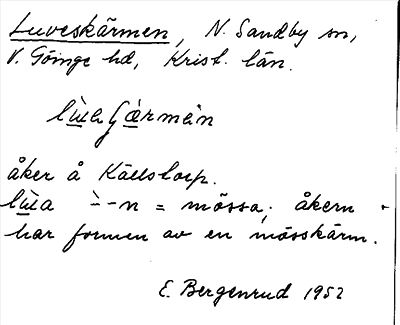 Luveskärmen, N. Sandby sn,
V. Göinge hd, Krist. län.
åker å Källstorp.
--n = mössa; åkern
har formen av en mösskärm.
E. Bergenrud 1952